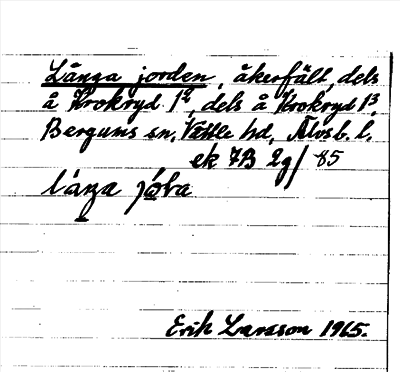 Långa jorden, åkerfält, dels
å Krokryd 1², dels å Krokryd 1³,
Bergums sn, Vättle hd, Älvsb. l.
ek 7B 2g/85
Erik Larsson 1965.